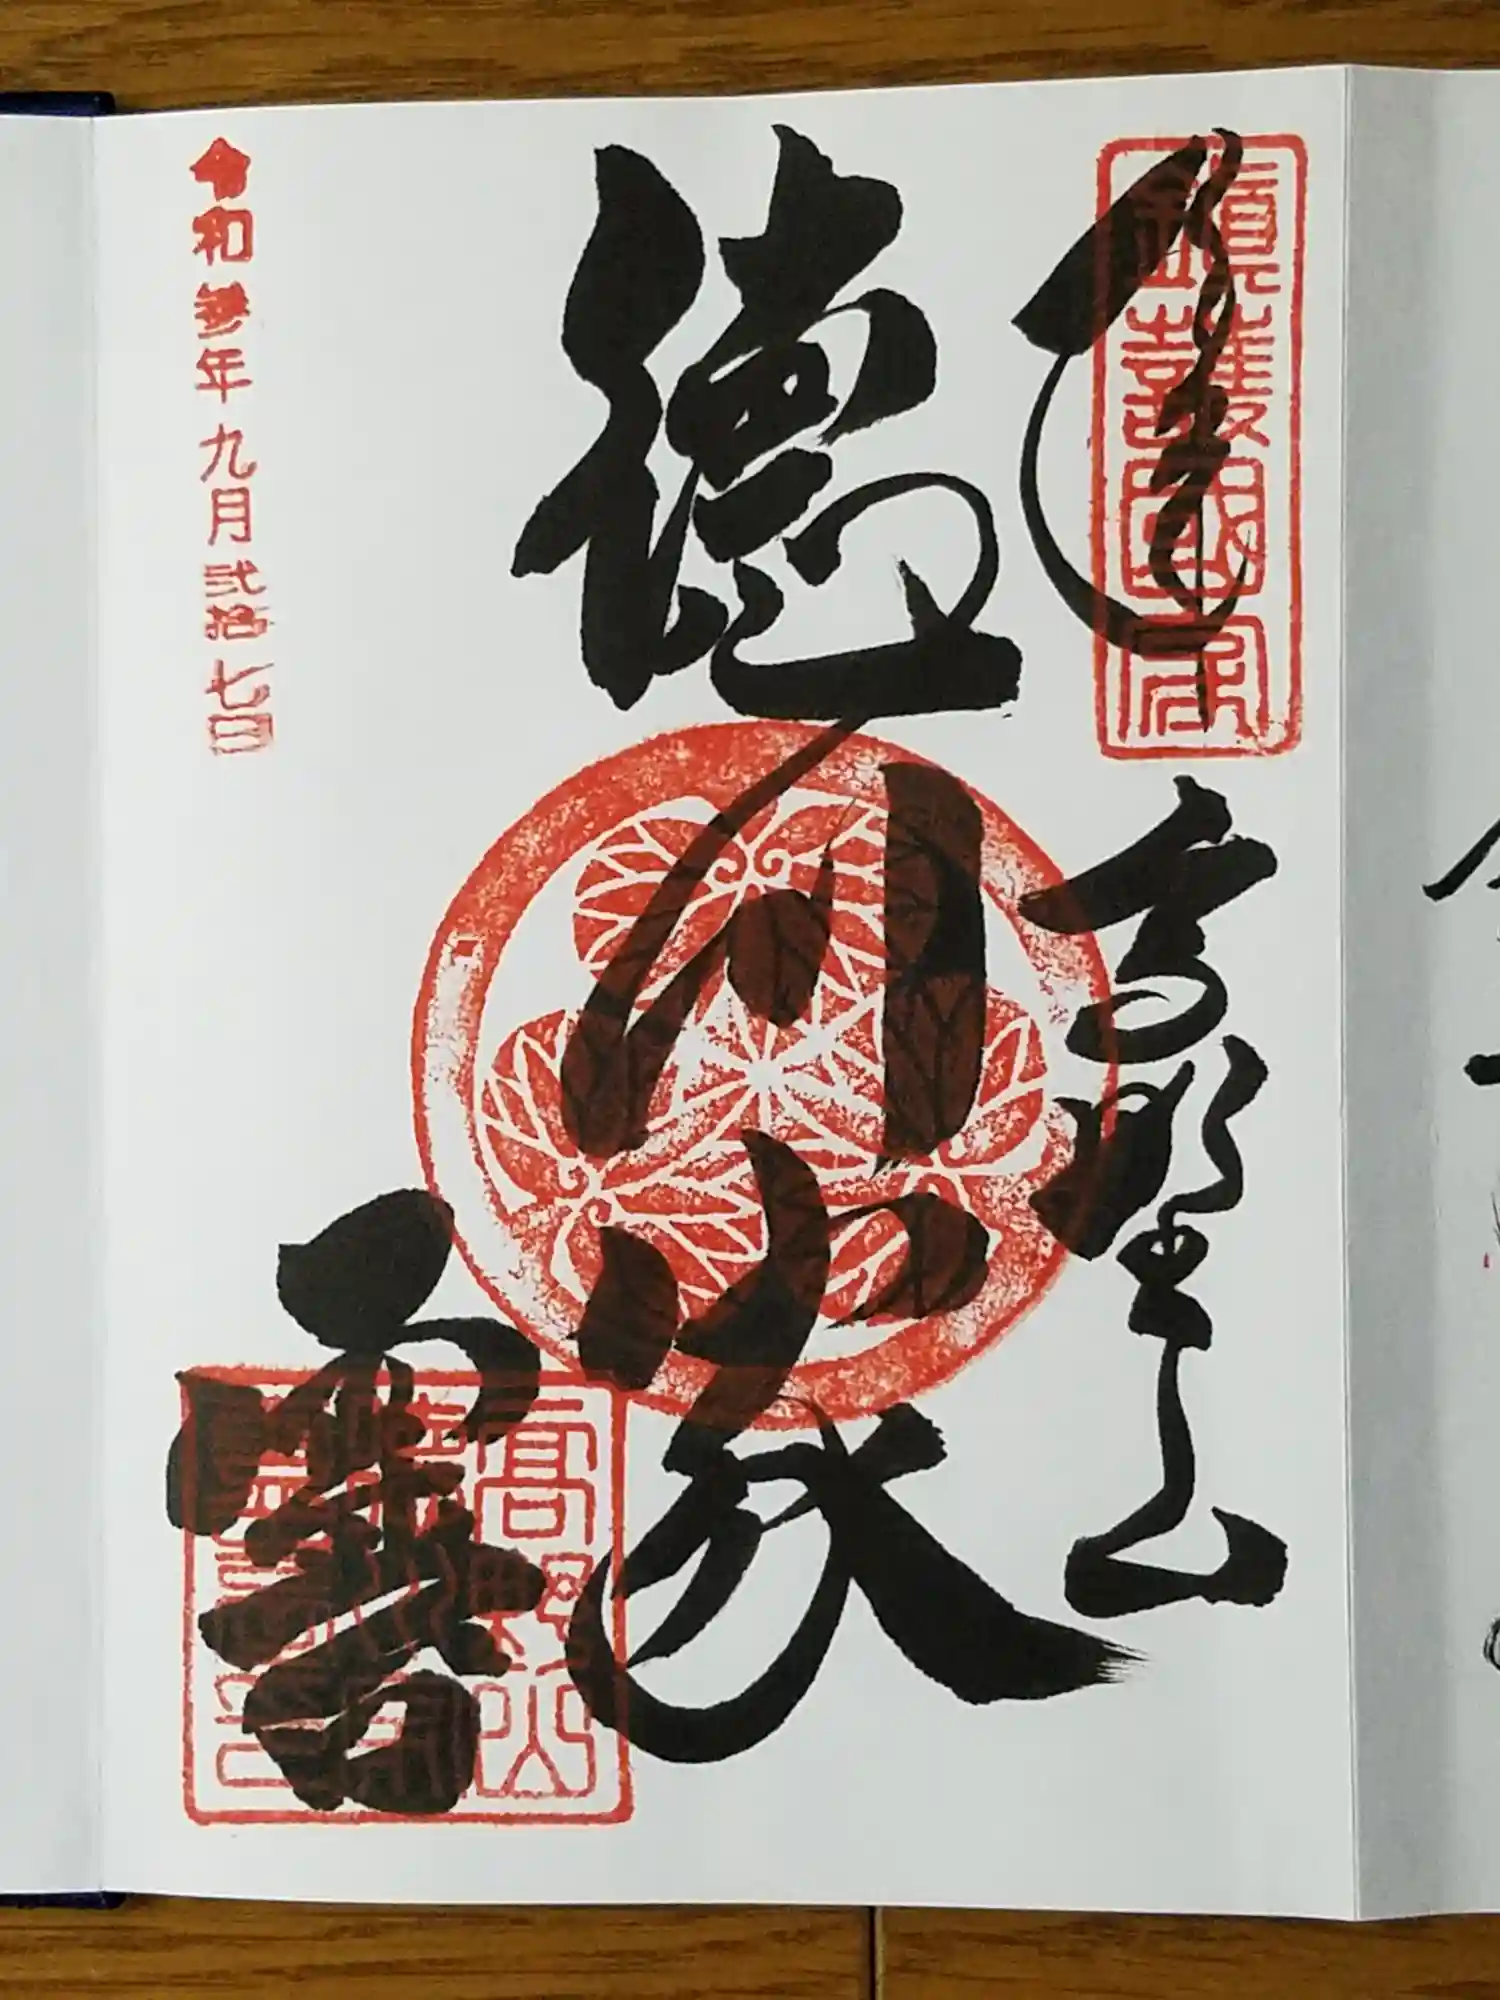 奉拝
高野山
鎮護國
徳川家
霊台
高野山
令和参年九月弐拾七日